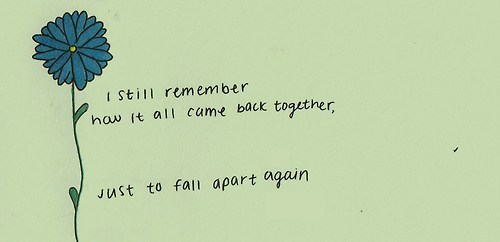 I still remember
how it all came back together,
just to fall apart again